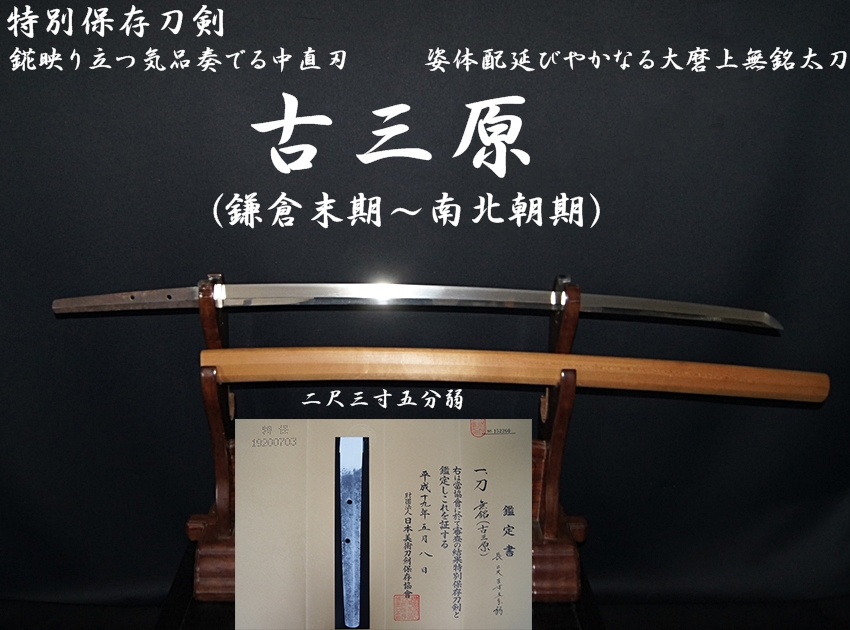 特別保存刀剣
錵映り立つ気品奏でる中直刃
姿体配延びやかなる大磨上無銘太刀
古三原
(鎌倉末期～南北朝期)
二尺三寸五分弱
特保
19200703
鑑定書
一、刀 無銘(古三原)
長弐尺三寸五分弱
右は當協會に於て審査の結果特別保存刀剣と
鑑定しこれを証する
平成十九年五月八日
財團法人日本美術刀剣保存協會